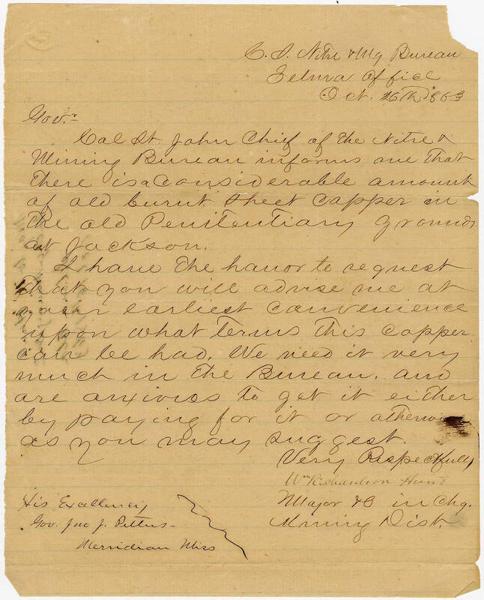 C. S. Nitre & Mg Bureau
Selma Office
Oct. 26th 1863
Gov:
Col St. John Chief of the Nitre &
Mining Bureau informs me that
there is a considerable amount
of old burnt sheet copper in
the old Penitentiary grounds
at Jackson.
I have the honor to request
that you will advise me at
your earliest convenience
upon what terms this copper
can be had. We need it very
much in the Bureau, and
are anxious to get it either
by paying for it or otherwise
as you may suggest.
Very Respectfully
Wm Richardson Hunt
Major &c in Chg.
Mining Dist.
His Excellency
Gov. Jno J. Pettus-
Merridian Miss